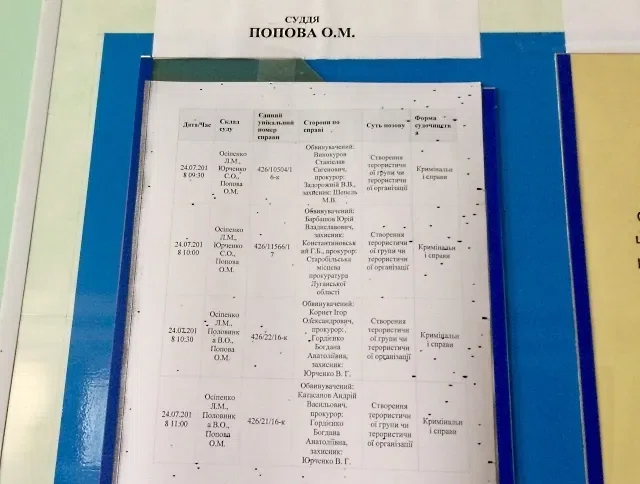 СУДДЯ
ПОПОВА О.М.
Дата/Час
Склад
суду
Єдиний
унікальний
номер
справи
Сторони по
справі
Суть позову
Форма
судочинств
а
24.07.201
8 09:30
Осіпенко
Л.М.,
Юрченко
С.О.,
Попова
О.М.
426/10504/1
6-к
Обвинувачений:
Винокуров
Станіслав
Євгенович,
прокурор:
Задорожній В.В.,
захисник: Шопель
М.В.
Створення
терористичн
ої групи чи
терористичн
ої організації
Кримінальн
і справи
24.07.201
8 10:00
Осіпенко
Л.М.,
Юрченко
С.О.,
Попова
О.М.
426/11566/1
7
Обвинувачений:
Барбашов Юрій
Владиславович,
захисник:
Константиновськ
ий Г.Б., прокурор:
Старобільська
місцева
прокуратура
Луганської
області
Створення
терористичн
ої групи чи
терористичн
ої організації
Кримінальн
і справи
24.07.201
8 10:30
Осіпенко
Л.М.,
Половинк
а В.О.,
Попова
О.М.
426/22/16-к
Обвинувачений:
Корнет Ігор
Олександрович,
прокурор:
Гордієнко
Богдана
Анатоліївна,
захисник:
Юрченко В. Г.
Створення
терористичн
ої групи чи
терористичн
ої організації
Кримінальн
і справи
24.07.201
8 11:00
Осіпенко
Л.М.,
Половинк
а В.О.,
Попова
О.М.
426/21/16-к
Обвинувачений:
Катасанов Андрій
Васильович,
прокурор:
Гордієнко
Богдана
Анатоліївна,
захисник:
Юрченко В. Г.
Створення
терористичн
ої групи чи
терористичн
ої організації
Кримінальн
і справи